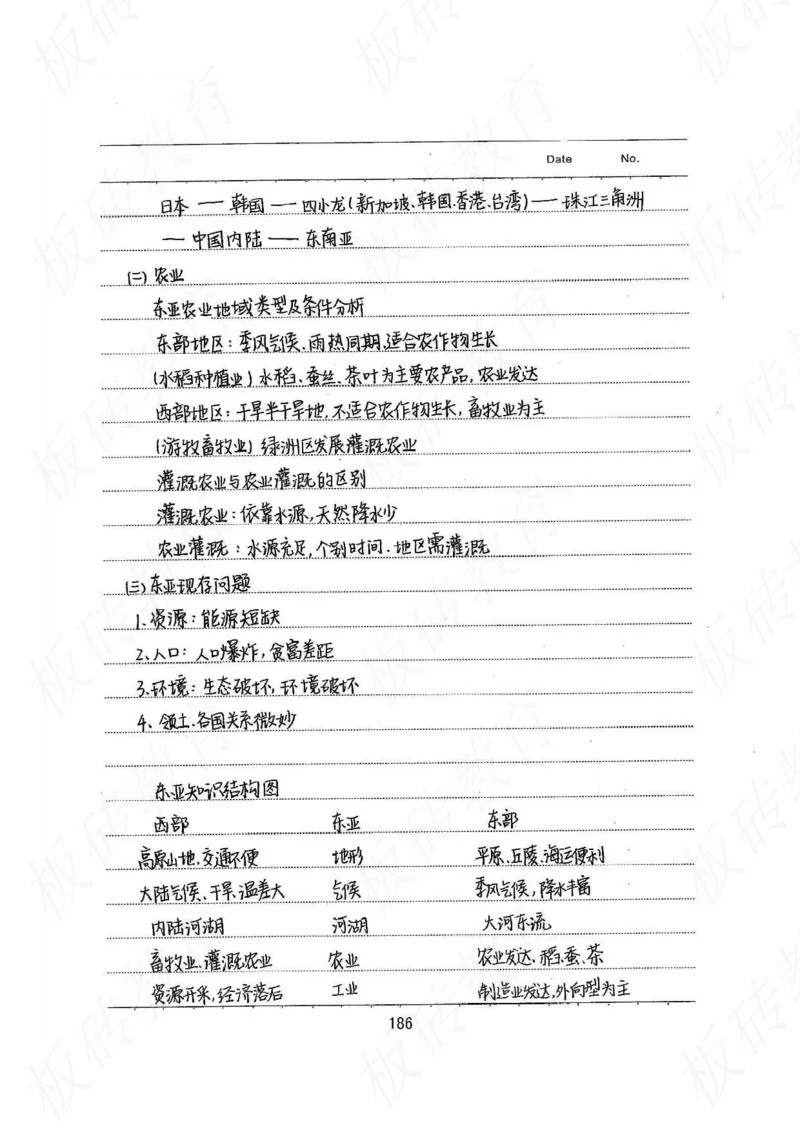 Date No.
日本 — 韩国 — 四小龙(新加坡、韩国、香港、台湾) — 珠江三角洲
— 中国内陆 — 东南亚
(二) 农业
东亚农业地域类型及条件分析
东部地区：季风气候、雨热同期,适合农作物生长
(水稻种植业) 水稻、蚕丝、茶叶为主要农产品，农业发达
西部地区：干旱半干旱地,不适合农作物生长，畜牧业为主
(游牧畜牧业) 绿洲区发展灌溉农业
灌溉农业与农业灌溉的区别
灌溉农业：依靠水源,天然降水少
农业灌溉：水源充足,个别时间、地区需灌溉
(三) 东亚现存问题
1、资源：能源短缺
2、人口：人口爆炸，贫富差距
3.环境：生态破坏，环境破坏
4、领土、各国关系微妙
东亚知识结构图
西部 东亚 东部
高原山地,交通不便 地形 平原、丘陵、海运便利
大陆气候、干旱、温差大 气候 季风气候，降水丰富
内陆河湖 河湖 大河东流
畜牧业、灌溉农业 农业 农业发达、稻、蚕、茶
资源开采，经济落后 工业 制造业发达,外向型为主
186
板砖教育